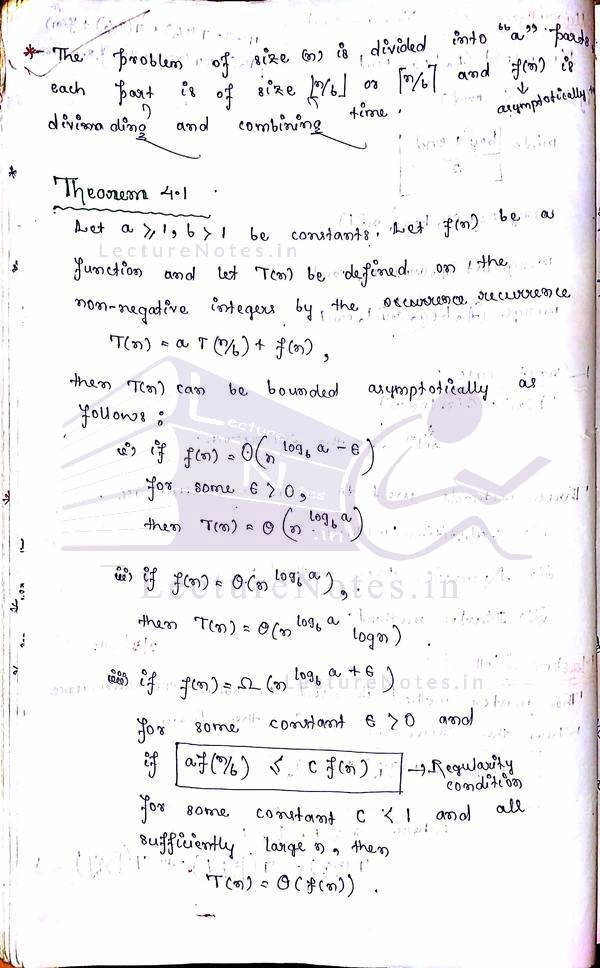 * The problem of size (n) is divided into "a" parts
each part is of size ⌊n/b⌋ or ⌈n/b⌉ and f(n) is
asymptotically
dividing and combining time.
Theorem 4.1
Let a ≥ 1, b > 1 be constants. Let f(n) be a
LectureNotes.in
function and let T(n) be defined on the
non-negative integers by the recurrence
T(n) = a T(n/b) + f(n),
then T(n) can be bounded asymptotically as
follows:
i) if f(n) = O(n^(log_b a - ε))
for some ε > 0,
then T(n) = Θ(n^(log_b a)).
ii) if f(n) = Θ(n^(log_b a)),
LectureNotes.in
then T(n) = Θ(n^(log_b a) log n).
iii) if f(n) = Ω(n^(log_b a + ε))
LectureNotes.in
for some constant ε > 0 and
if af(n/b) ≤ c f(n), → Regularity
condition
for some constant c < 1 and all
sufficiently large n, then
T(n) = Θ(f(n)).